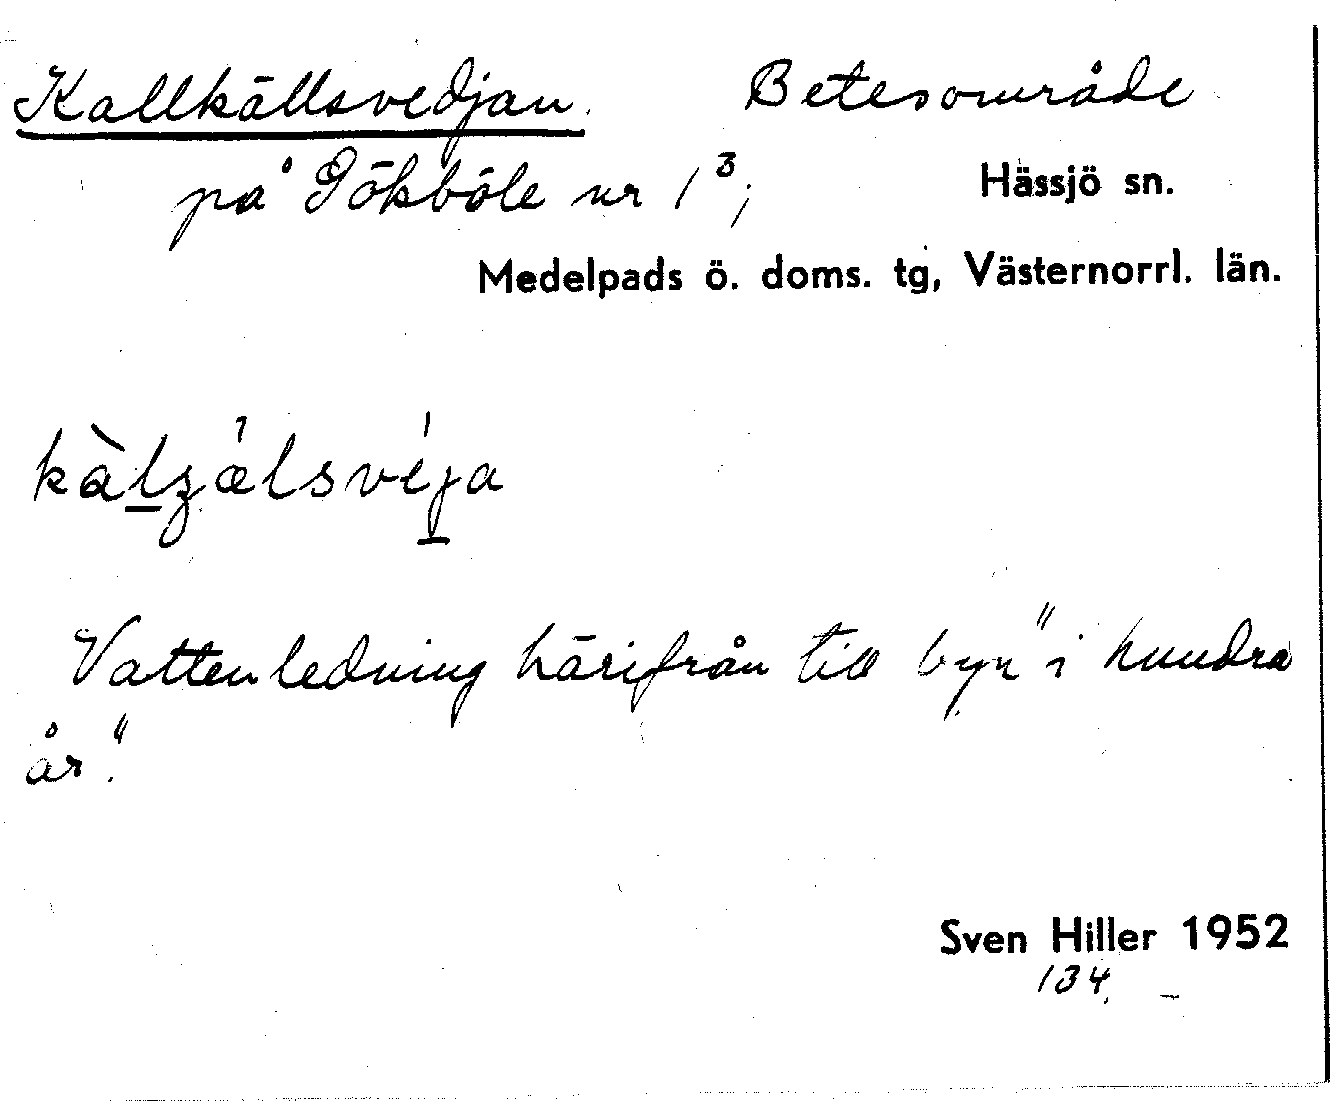 Kallkällsvedjan. Betesområde
på Gökböle nr 1³; Hässjö sn.
Medelpads ö. doms. tg, Västernorrl. län.
Vattenledning härifrån till byn "i hundra
år."
Sven Hiller 1952
134